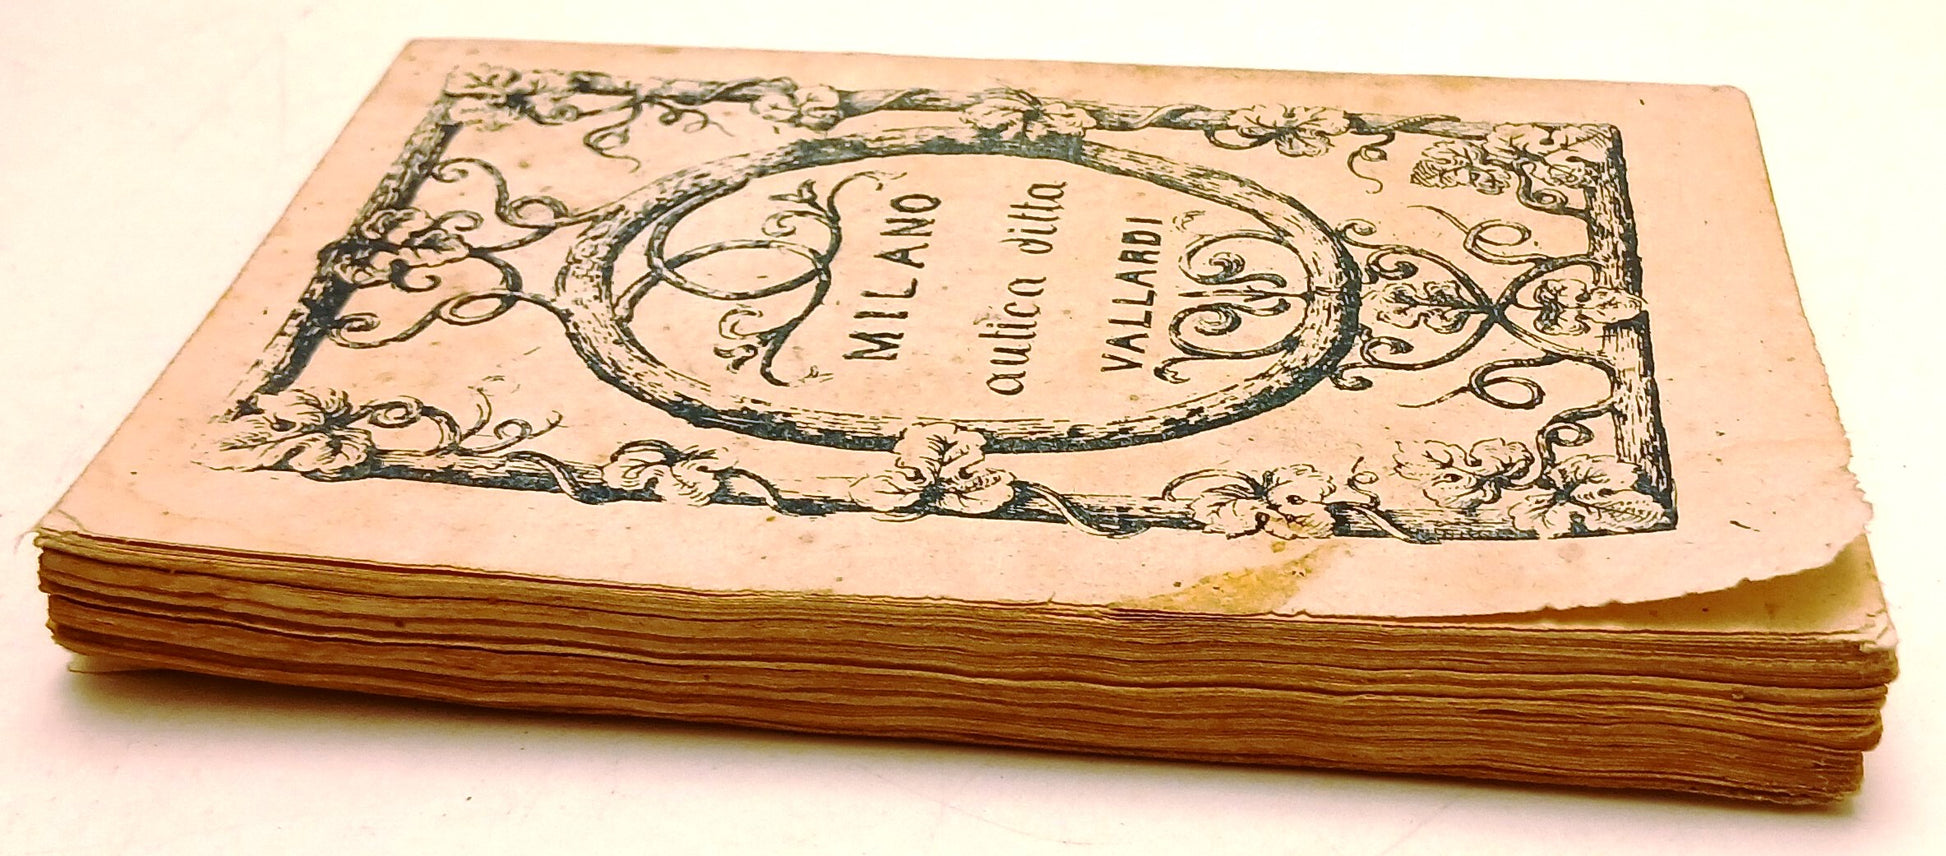 MILANO
aulica ditta
VALLARDI